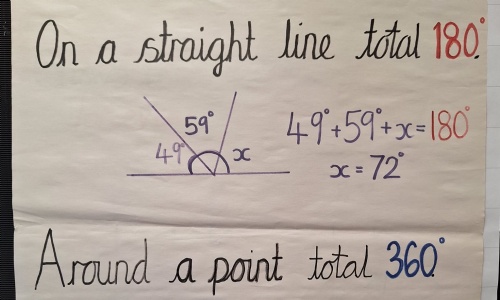 On a straight line total 180°.
59°
49°
x
49°+59°+x=180°
x=72°
Around a point total 360°.